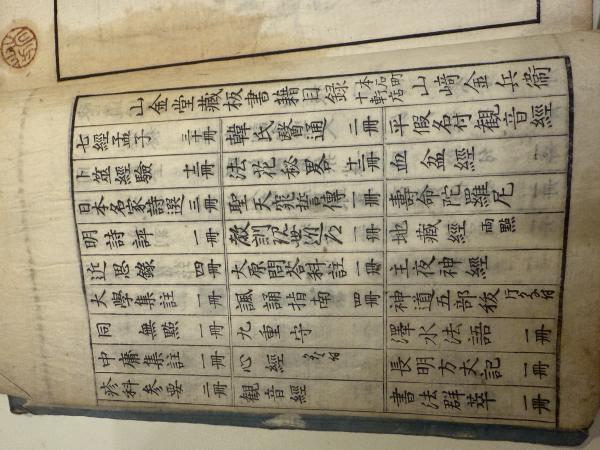 山金堂藏板書籍目録 本石町十軒店 山崎金兵衛
七經孟子 冊 韓氏醫通 二冊 平假名付觀音經
卜筮經驗 冊 法花秘畧 冊 血盆經
日本名家詩選 三冊 聖天 傳 一冊 壽命陀羅尼
明詩評 一冊 教訓 一冊 地藏經 両點
近思錄 四冊 大原問答科註 一冊 主夜神經
大學集註 一冊 諷誦指南 四冊 神道五部秡
同 無點 一冊 九重守 澤水法語 一冊
中庸集註 一冊 心經 長明方丈記 一冊
疹科参要 二冊 觀音經 書法群萃 一冊